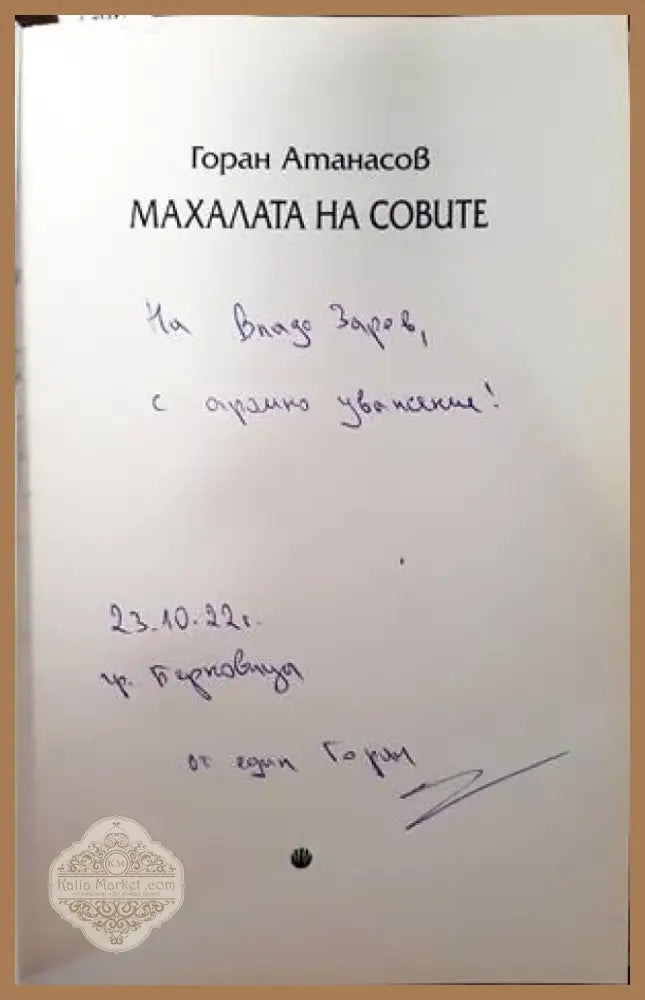 Горан Атанасов
МАХАЛАТА НА СОВИТЕ
На Владо Зарев,
с огромно уважение!
23.10.22г.
гр. Берковица
от един Горан
KM
Kalia Market .com